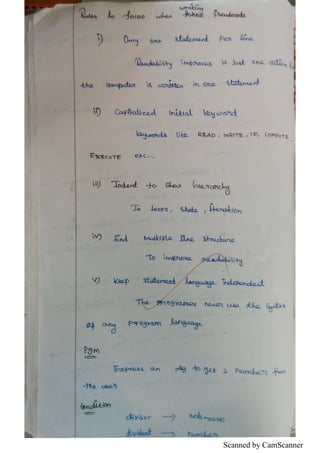 Rules to follow when writing Pseudocode
i) Only one statement Per line
Readability improves it Just one action
the computer is written in one statement
ii) Capitalized initial keyword
keywords like READ, WRITE, IF, COMPUTE
EXECUTE etc...
iii) Indent to show hierarchy
In loops, state, iteration
iv) End Multiple line structure
To improve readability
v) keep statement language independent
The programer never use the Syntax
of any program language
Pgm
Express an alg to get 2 number from
the user
Condition
divisor → non-zero
divident → number
Scanned by CamScanner